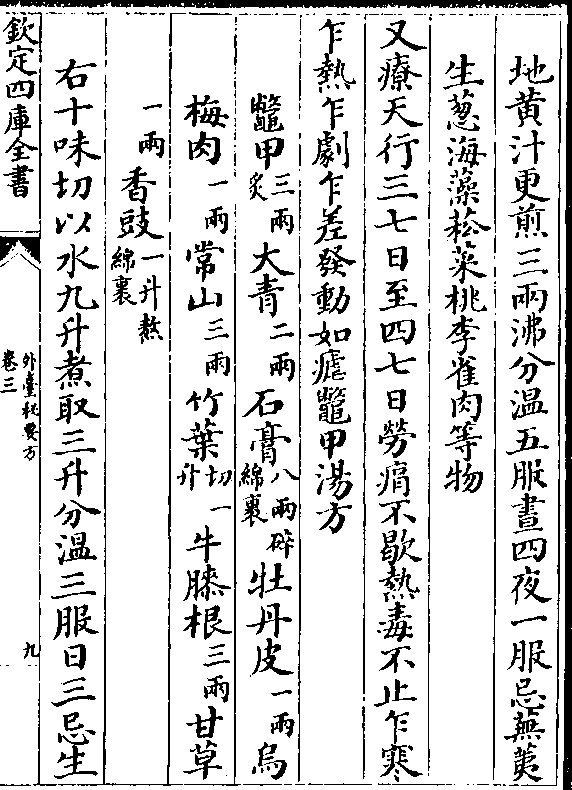 地黄汁更煎三兩沸分温五服晝四夜一服忌蕪荑
生葱海藻菘菜桃李雀肉等物
又療天行三七日至四七日勞痟不歇熱毒不止乍寒
乍熱乍劇乍差發動如瘧鼈甲湯方
鼈甲三兩炙大青二兩石膏八兩碎綿裹牡丹皮一兩烏
梅肉一兩常山三兩竹葉切一升牛膝根三兩甘草
一兩香豉一升熬綿裹
右十味切以水九升煮取三升分温三服日三忌生
欽定四庫全書
外臺秘要方
卷三
九